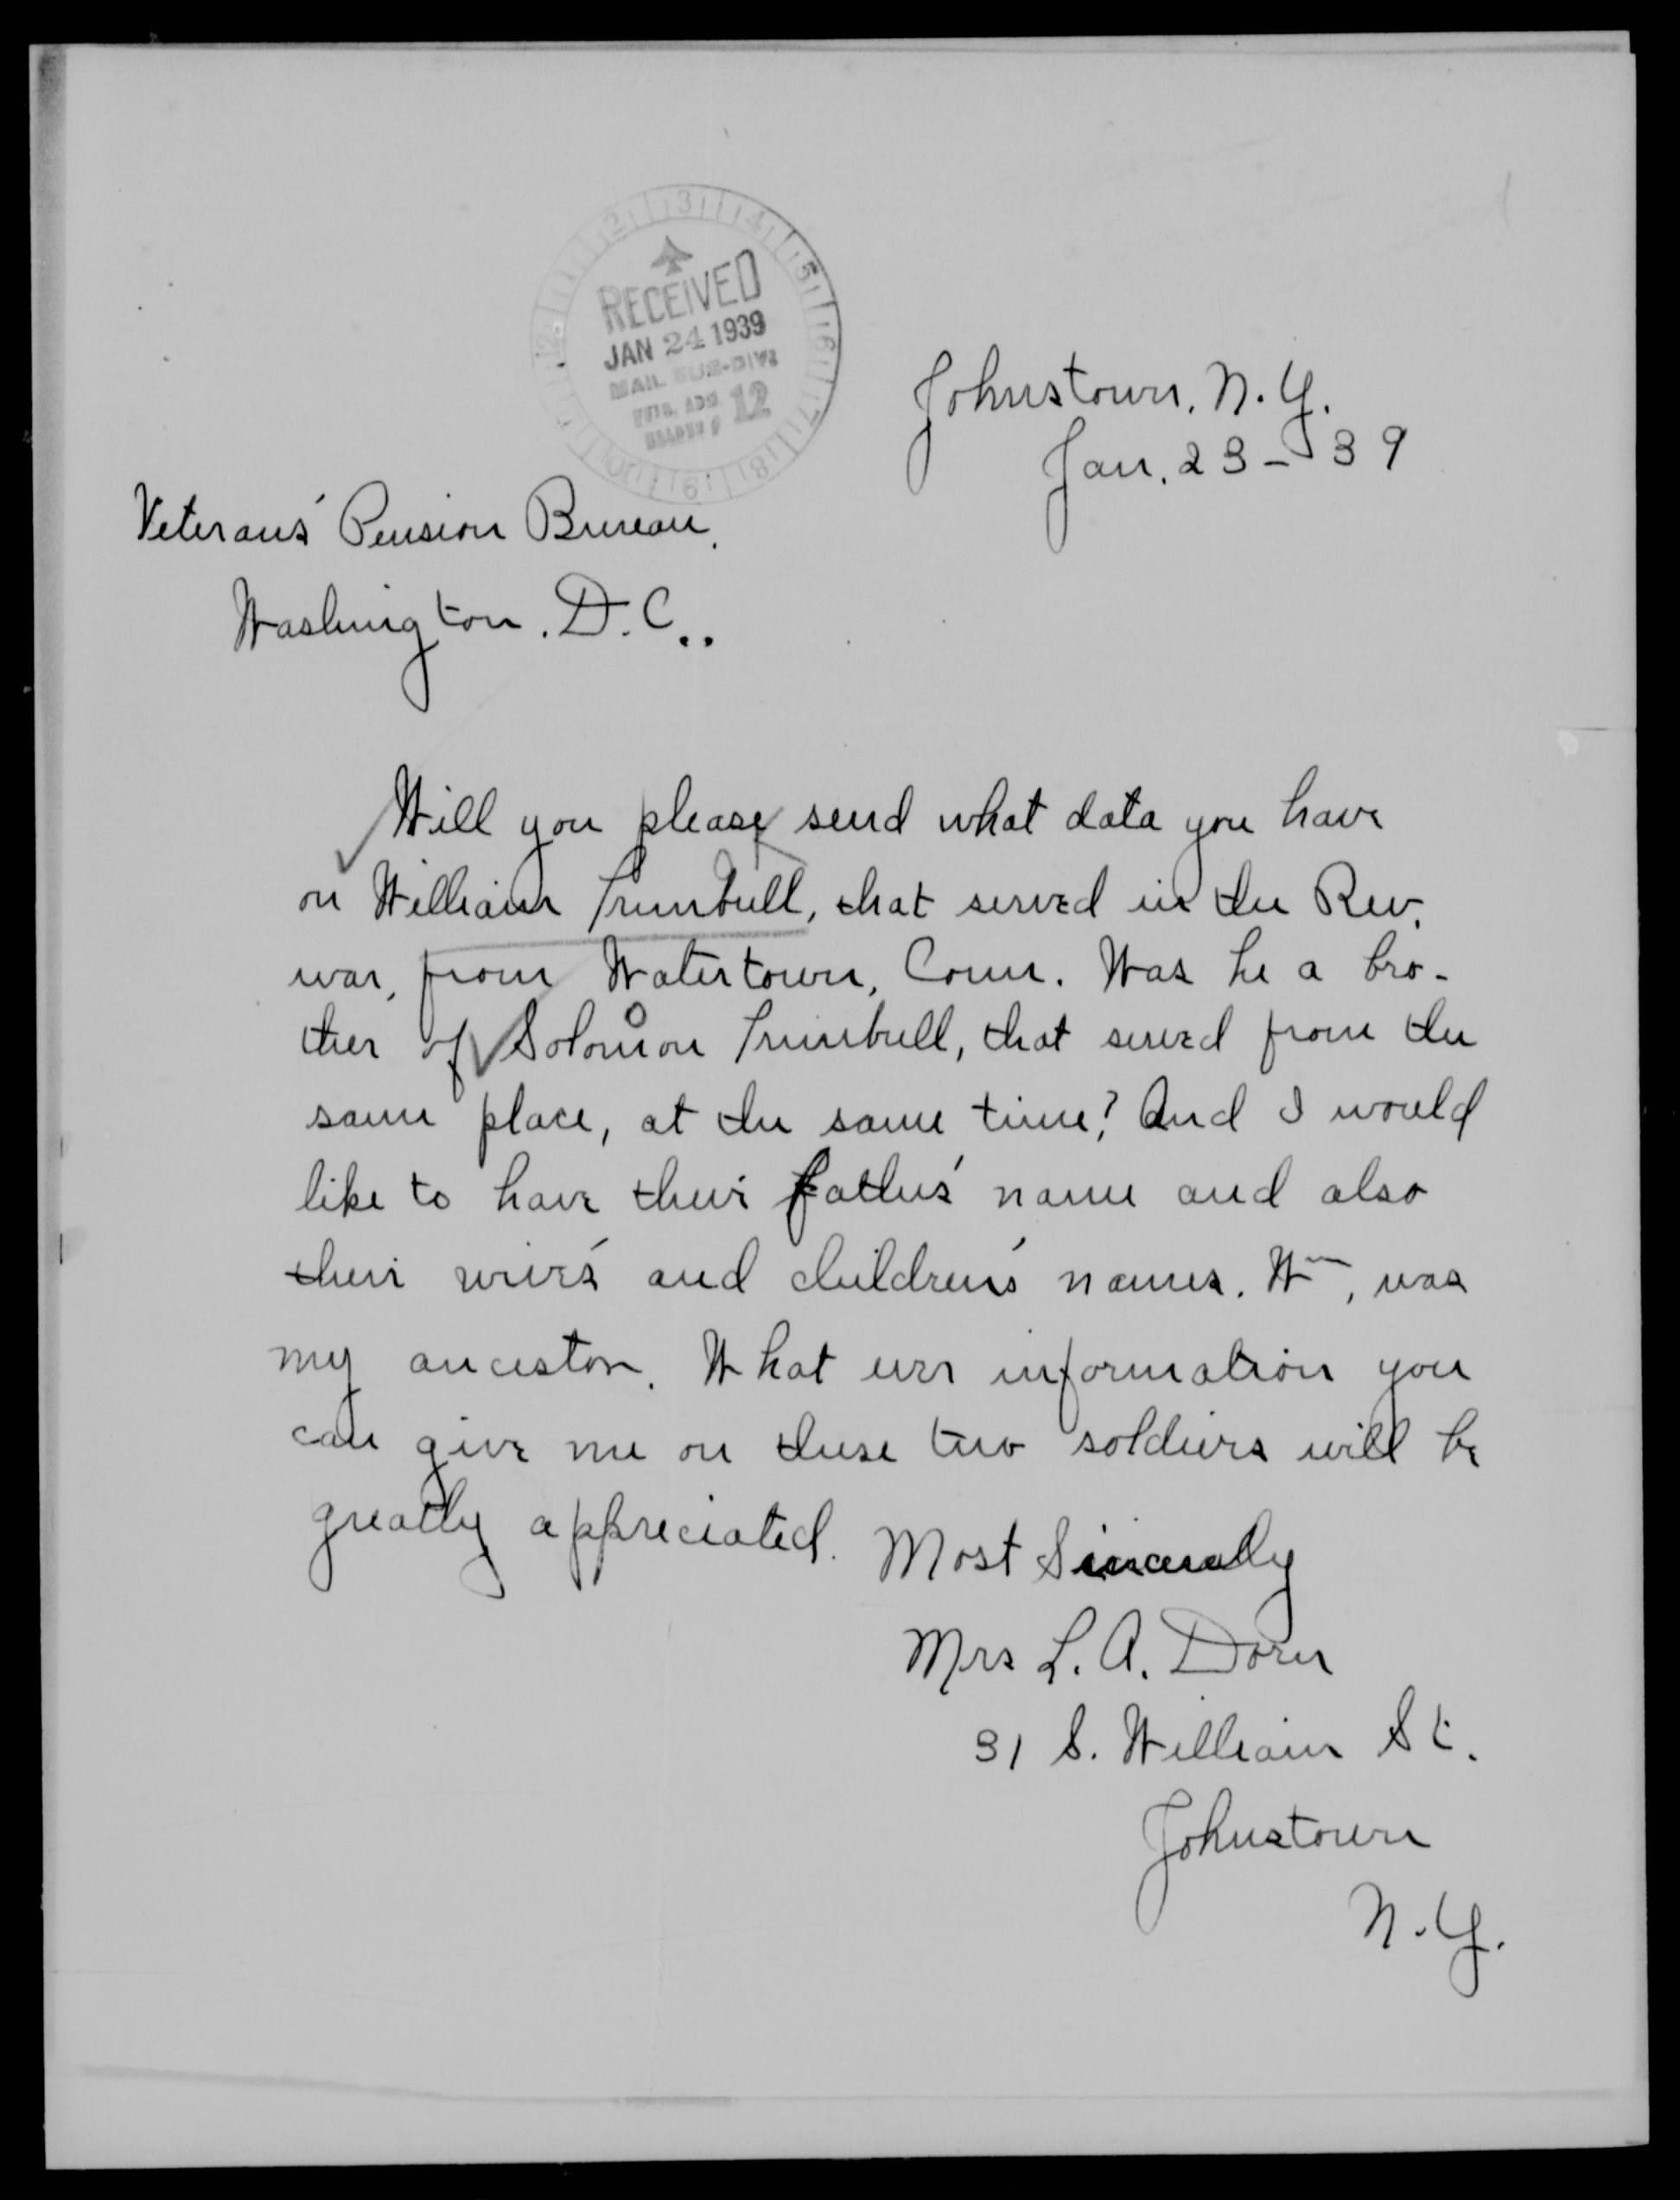 2 3 4 5 6 7 8 9 10 12
RECEIVED
JAN 24 1939
MAIL SUB-DIV
VETS. ADM. 12
Johnstown, N.Y.
Jan. 23 - 39
Veterans' Pension Bureau.
Washington. D.C..
Will you please send what data you have
on William Trumbull, that served in the Rev.
war, from Watertown, Conn. Was he a bro-
ther of Solomon Trumbull, that served from the
same place, at the same time? And I would
like to have their father's name and also
their wive's and children's names. Wm, was
my ancestor. What ever information you
can give me on these two soldiers will be
greatly appreciated.
Most Sincerely
Mrs L. A. Dorn
31 S. William St.
Johnstown
N.Y.